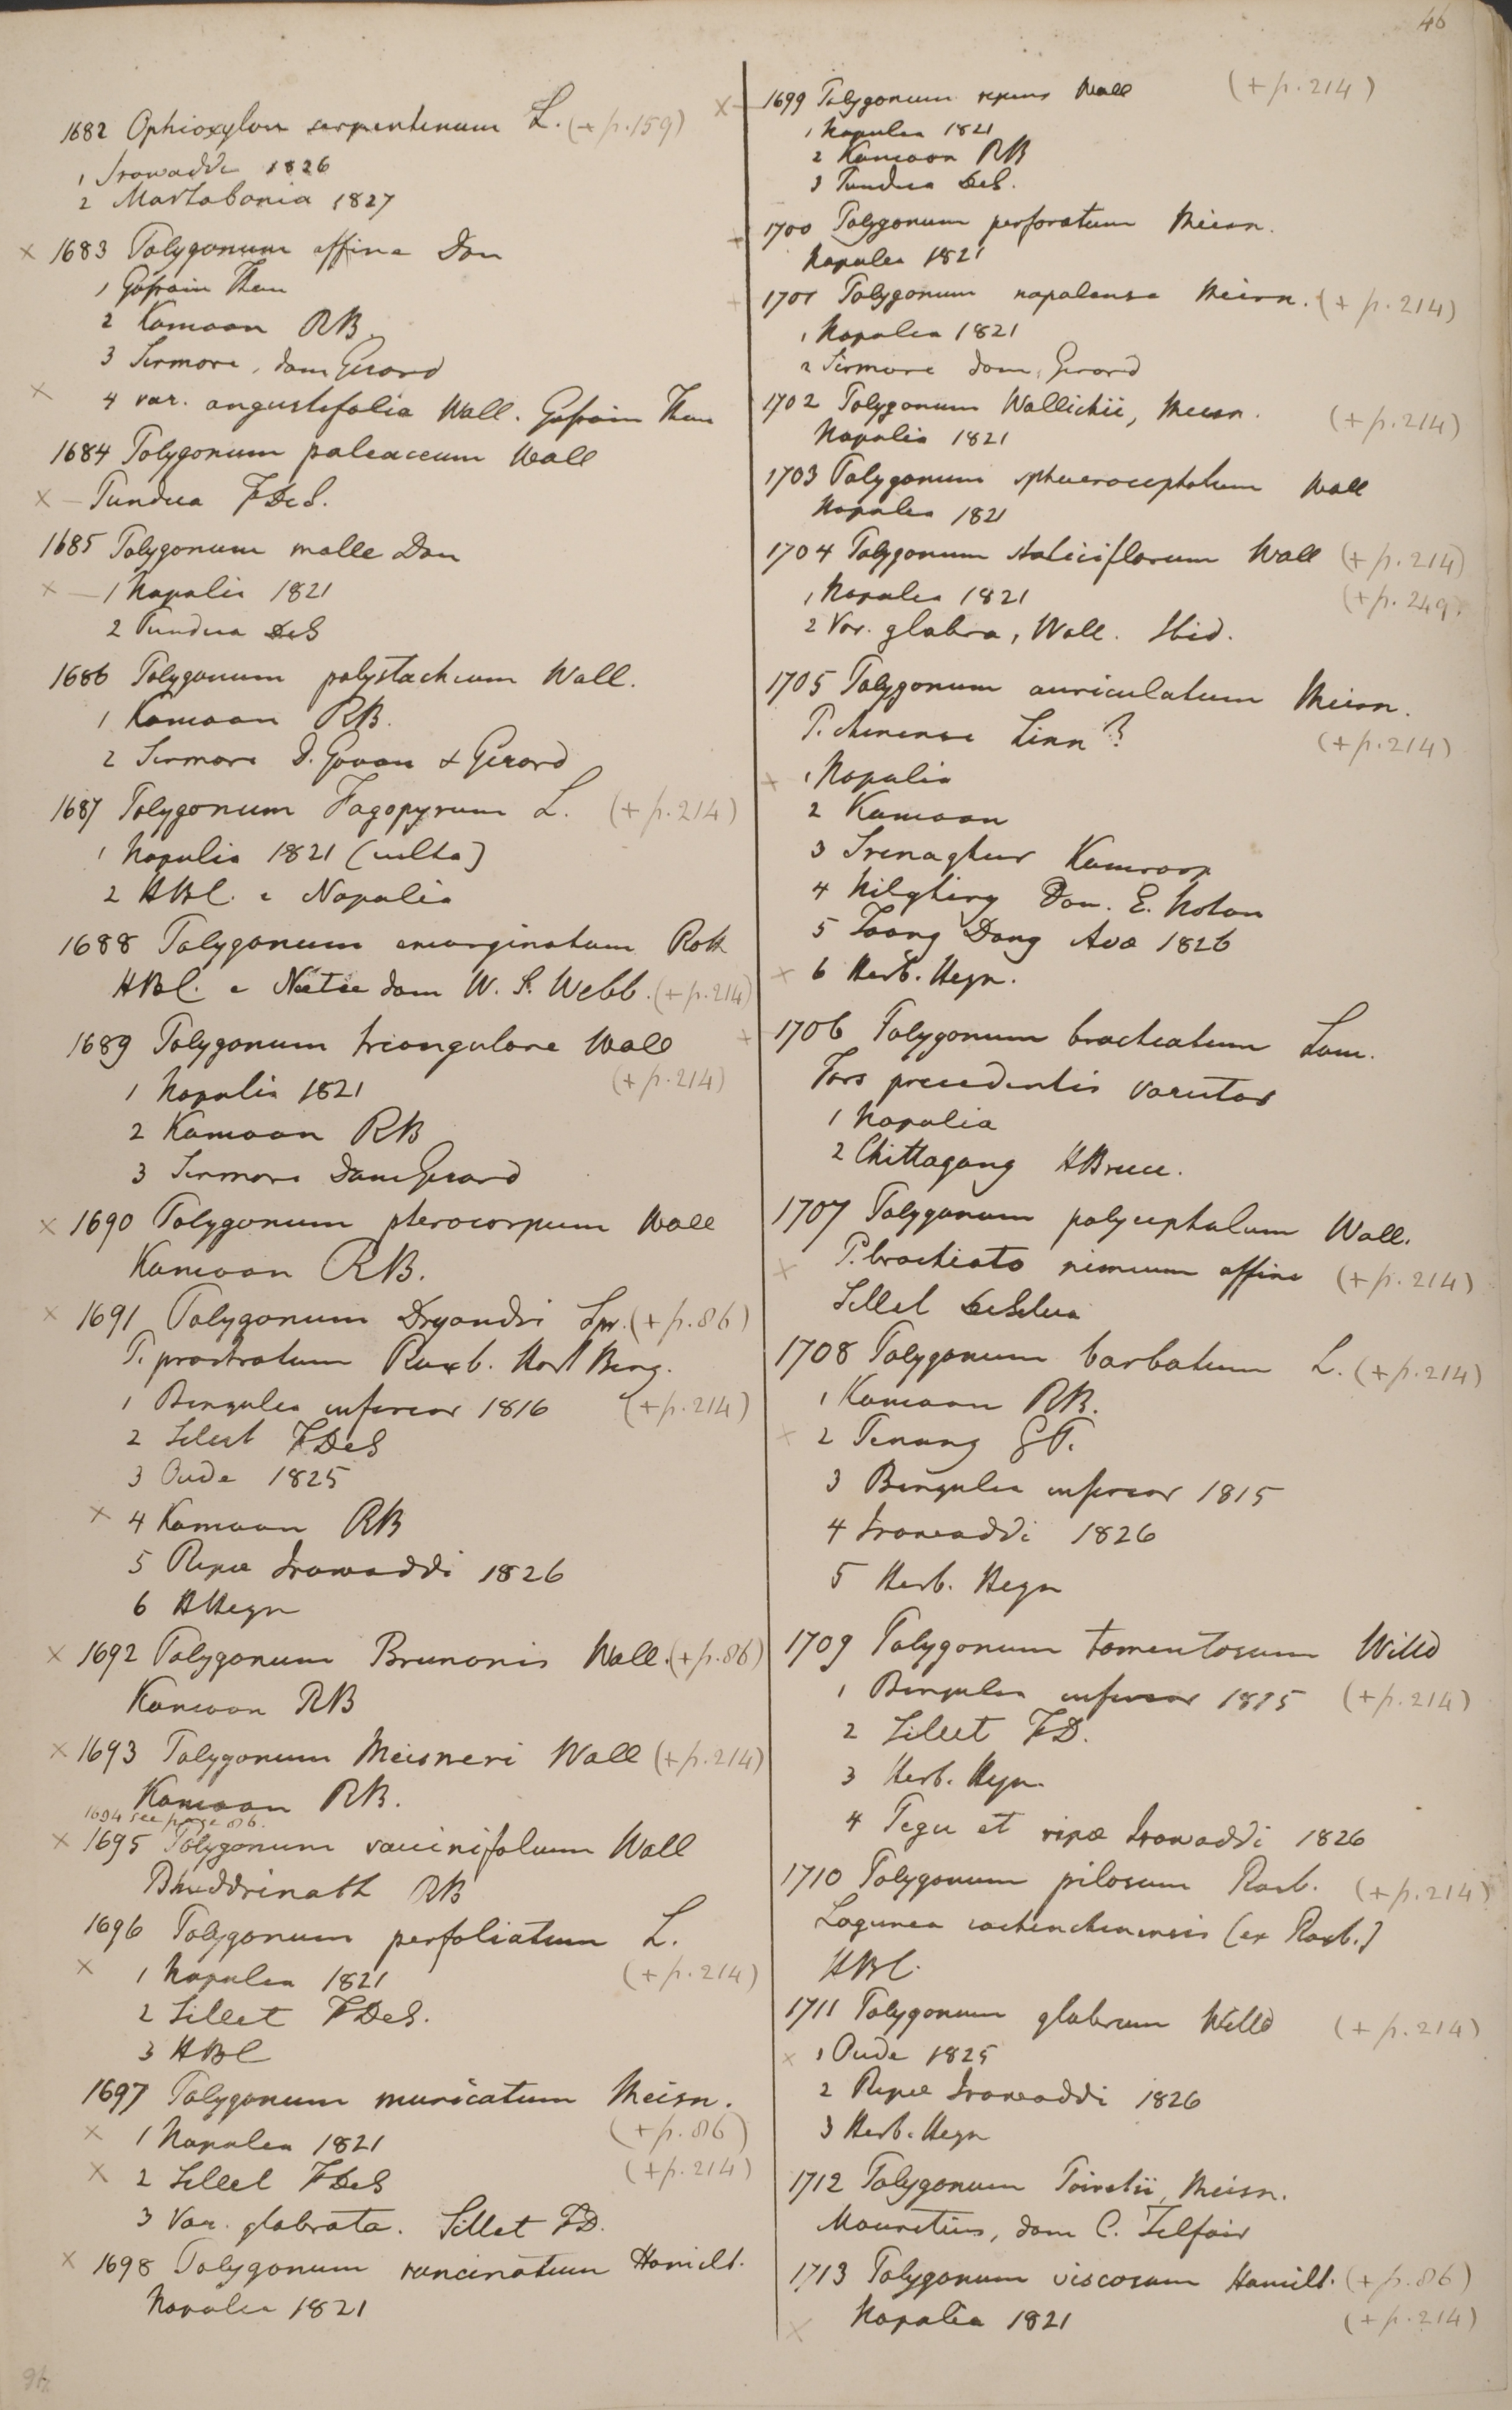 46
1682 Ophioxylon serpentinum L. (+ p. 159)
1 Irawaddi 1826
2 Martabania 1827
× 1683 Polygonum affine Don
1 Gosain Than
2 Kamaon RB
3 Sirmore, dom Gerard
× 4 var. angustifolia Wall. Gosain Than
1684 Polygonum paleaceum Wall
× — Pundua FDeS.
1685 Polygonum molle Don
× — 1 Napalia 1821
2 Pundua DeS
1686 Polygonum polystachium Wall.
1 Kamaon RB.
2 Sirmore D. Govan & Gerard
1687 Polygonum Fagopyrum L. (+ p. 214)
1 Napalia 1821 (culta)
2 HBC. e Napalia
1688 Polygonum emarginatum Roth
HBC. e dom W. S. Webb. (+ p. 214)
1689 Polygonum triangulare Wall
1 Napalia 1821 (+ p. 214)
2 Kamaon RB
3 Sirmore Dom Gerard
× 1690 Polygonum pterocarpum Wall
Kamaon RB.
× 1691 Polygonum Dryandri Spr. (+ p. 86)
P. prostratum Roxb. Hort Beng.
1 Bengalia inferior 1816 (+ p. 214)
2 Sillet FDeS
3 Oude 1825
× 4 Kamaon RB
5 Ripae Irawaddi 1826
6 HHeyn
× 1692 Polygonum Brunonis Wall. (+ p. 86)
Kamaon RB
× 1693 Polygonum Meisneri Wall (+ p. 214)
Kamaon RB.
1694 see page 86.
× 1695 Polygonum vaccinifolium Wall
Bhuddrinath RB
1696 Polygonum perfoliatum L.
× 1 Napalia 1821 (+ p. 214)
2 Sillet FDeS.
3 HBC
1697 Polygonum muricatum Meisn.
× 1 Napalia 1821 (+ p. 86)
× 2 Sillet FDeS (+ p. 214)
3 Var. glabrata. Sillet FD.
× 1698 Polygonum runcinatum Hamilt.
Napalia 1821
× 1699 Polygonum repens Wall (+ p. 214)
1 Napalia 1821
2 Kamaon RB
3 Pundua DeS.
+ 1700 Polygonum perforatum Meisn.
Napalia 1821
+ 1701 Polygonum napalense Meisn. (+ p. 214)
1 Napalia 1821
2 Sirmore dom. Gerard
1702 Polygonum Wallichii, Meisn. (+ p. 214)
Napalia 1821
1703 Polygonum sphaerocephalum Wall
Napalia 1821
1704 Polygonum staticiflorum Wall (+ p. 214)
1 Napalia 1821 (+ p. 249)
2 Var. glabra, Wall. Ibid.
1705 Polygonum auriculatum Meisn.
P. chinense Linn? (+ p. 214)
+ 1 Napalia
2 Kamaon
3 Srinaghur Kamroop
4 Nilghiry Dom. E. Noton
5 Taong Dong Ava 1826
× 6 Herb. Heyn.
+ 1706 Polygonum brachiatum Lam.
Fors precedentis varietas
1 Napalia
2 Chittagong HBruce.
1707 Polygonum polycephalum Wall.
× P. brachiato nimium affine (+ p. 214)
Sillet DeSilva
1708 Polygonum barbatum L. (+ p. 214)
1 Kamaon RB.
× 2 Penang GP.
3 Bengalia inferior 1815
4 Irawaddi 1826
5 Herb. Heyn
1709 Polygonum tomentosum Willd
1 Bengalia inferior 1815 (+ p. 214)
2 Sillet FD.
3 Herb. Heyn.
4 Pegu et ripae Irawaddi 1826
1710 Polygonum pilosum Roxb. (+ p. 214)
Lagunea cochinchinensis (ex Roxb.)
HBC.
1711 Polygonum glabrum Willd (+ p. 214)
× 1 Oude 1825
2 Ripae Irawaddi 1826
3 Herb. Heyn
1712 Polygonum Poiretii, Meisn.
Mauretius, dom C. Telfair
1713 Polygonum viscosum Hamilt. (+ p. 86)
× Napalia 1821 (+ p. 214)